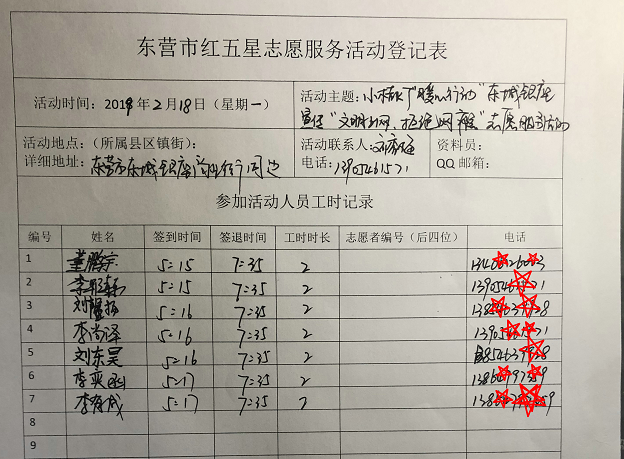 东营市红五星志愿服务活动登记表
活动时间：2019年2月18日（星期一）
活动主题：小橘灯"暖心行动"东城银座
宣传"文明上网，拒绝网瘾"志愿服务活动
活动地点：（所属县区镇街）：
详细地址：东营市东城银座商业街周边
活动联系人：
电话：13905461571
资料员：
QQ邮箱：
参加活动人员工时记录
编号 姓名 签到时间 签退时间 工时时长 志愿者编号（后四位） 电话
1 董鹏宇 5:15 7:35 2
2 李 5:15 7:35 2
3 刘 扬 5:16 7:35 2
4 李尚泽 5:16 7:35 2
5 刘东昊 5:16 7:35 2
6 李奕函 5:17 7:35 2
7 李有成 5:17 7:35 2
8
9